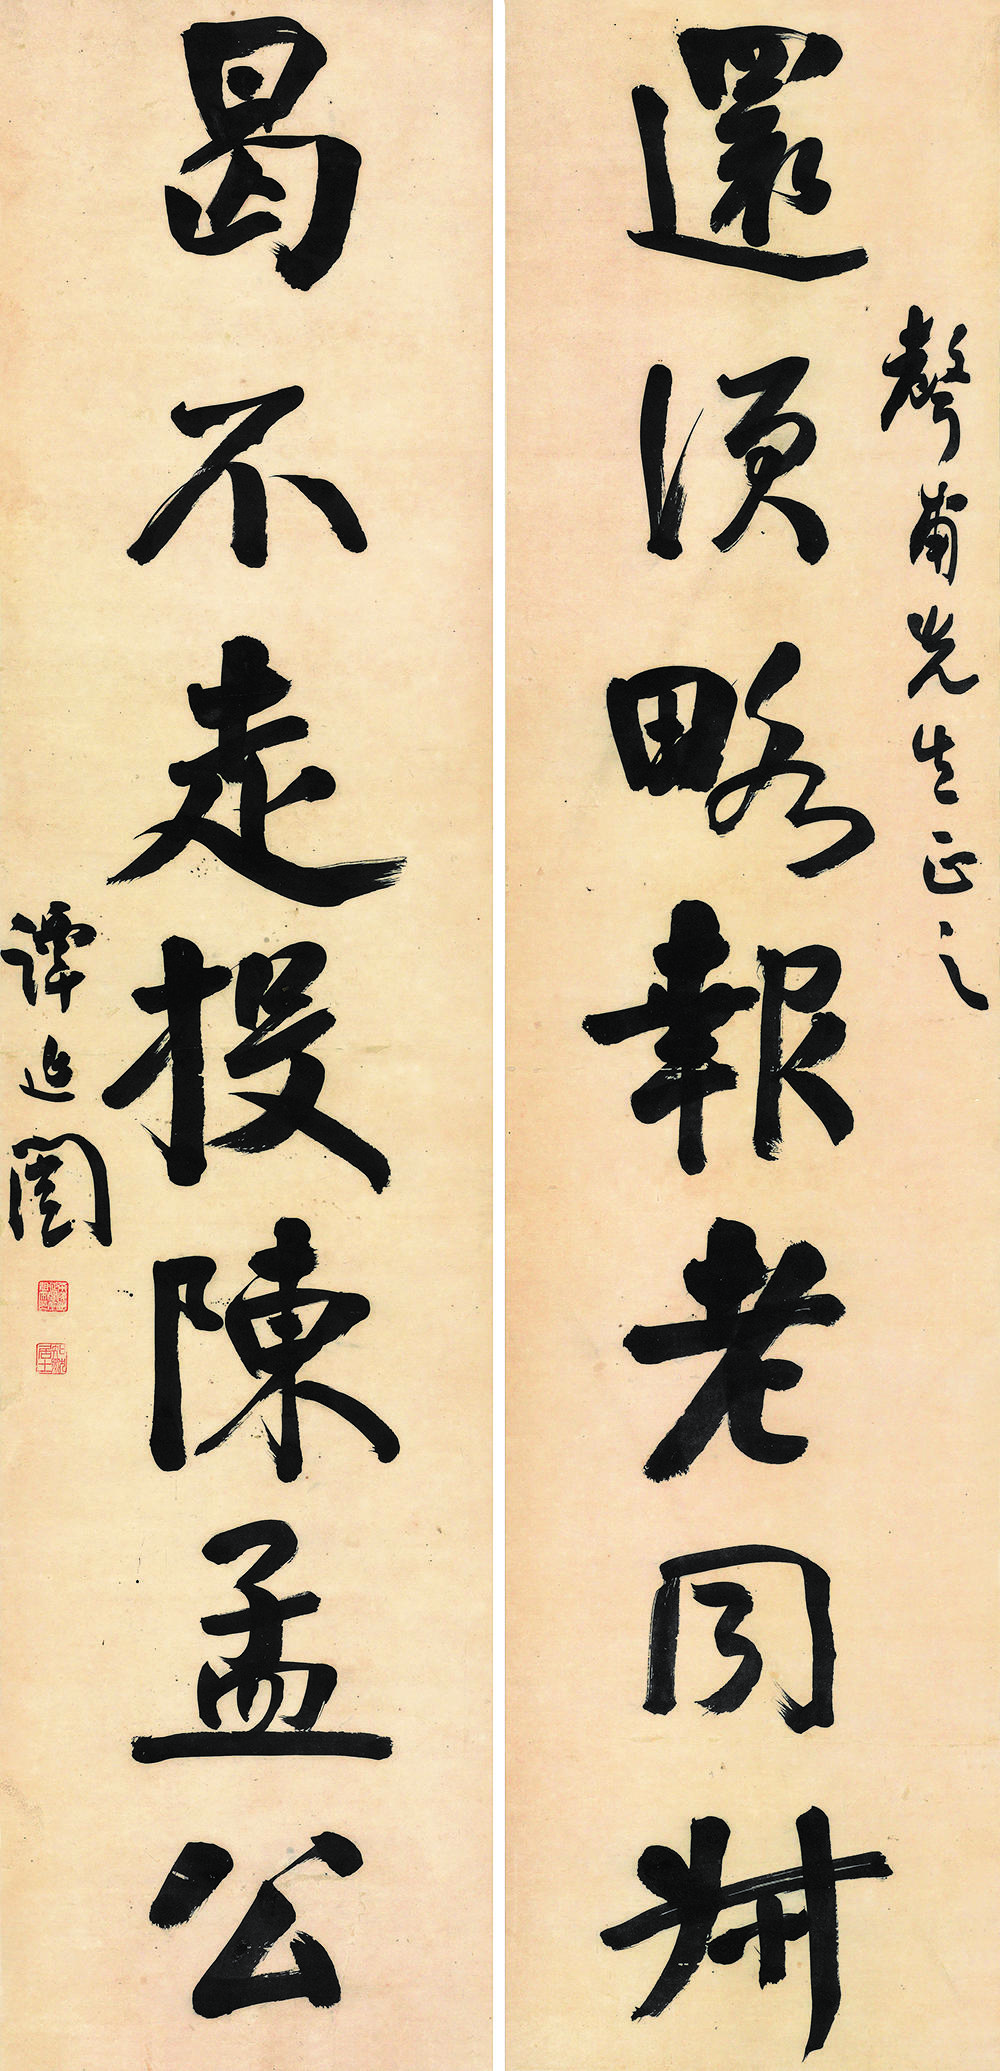 聲甫先生正之
還須略報老同叔
曷不走投陳孟公
譚延闓